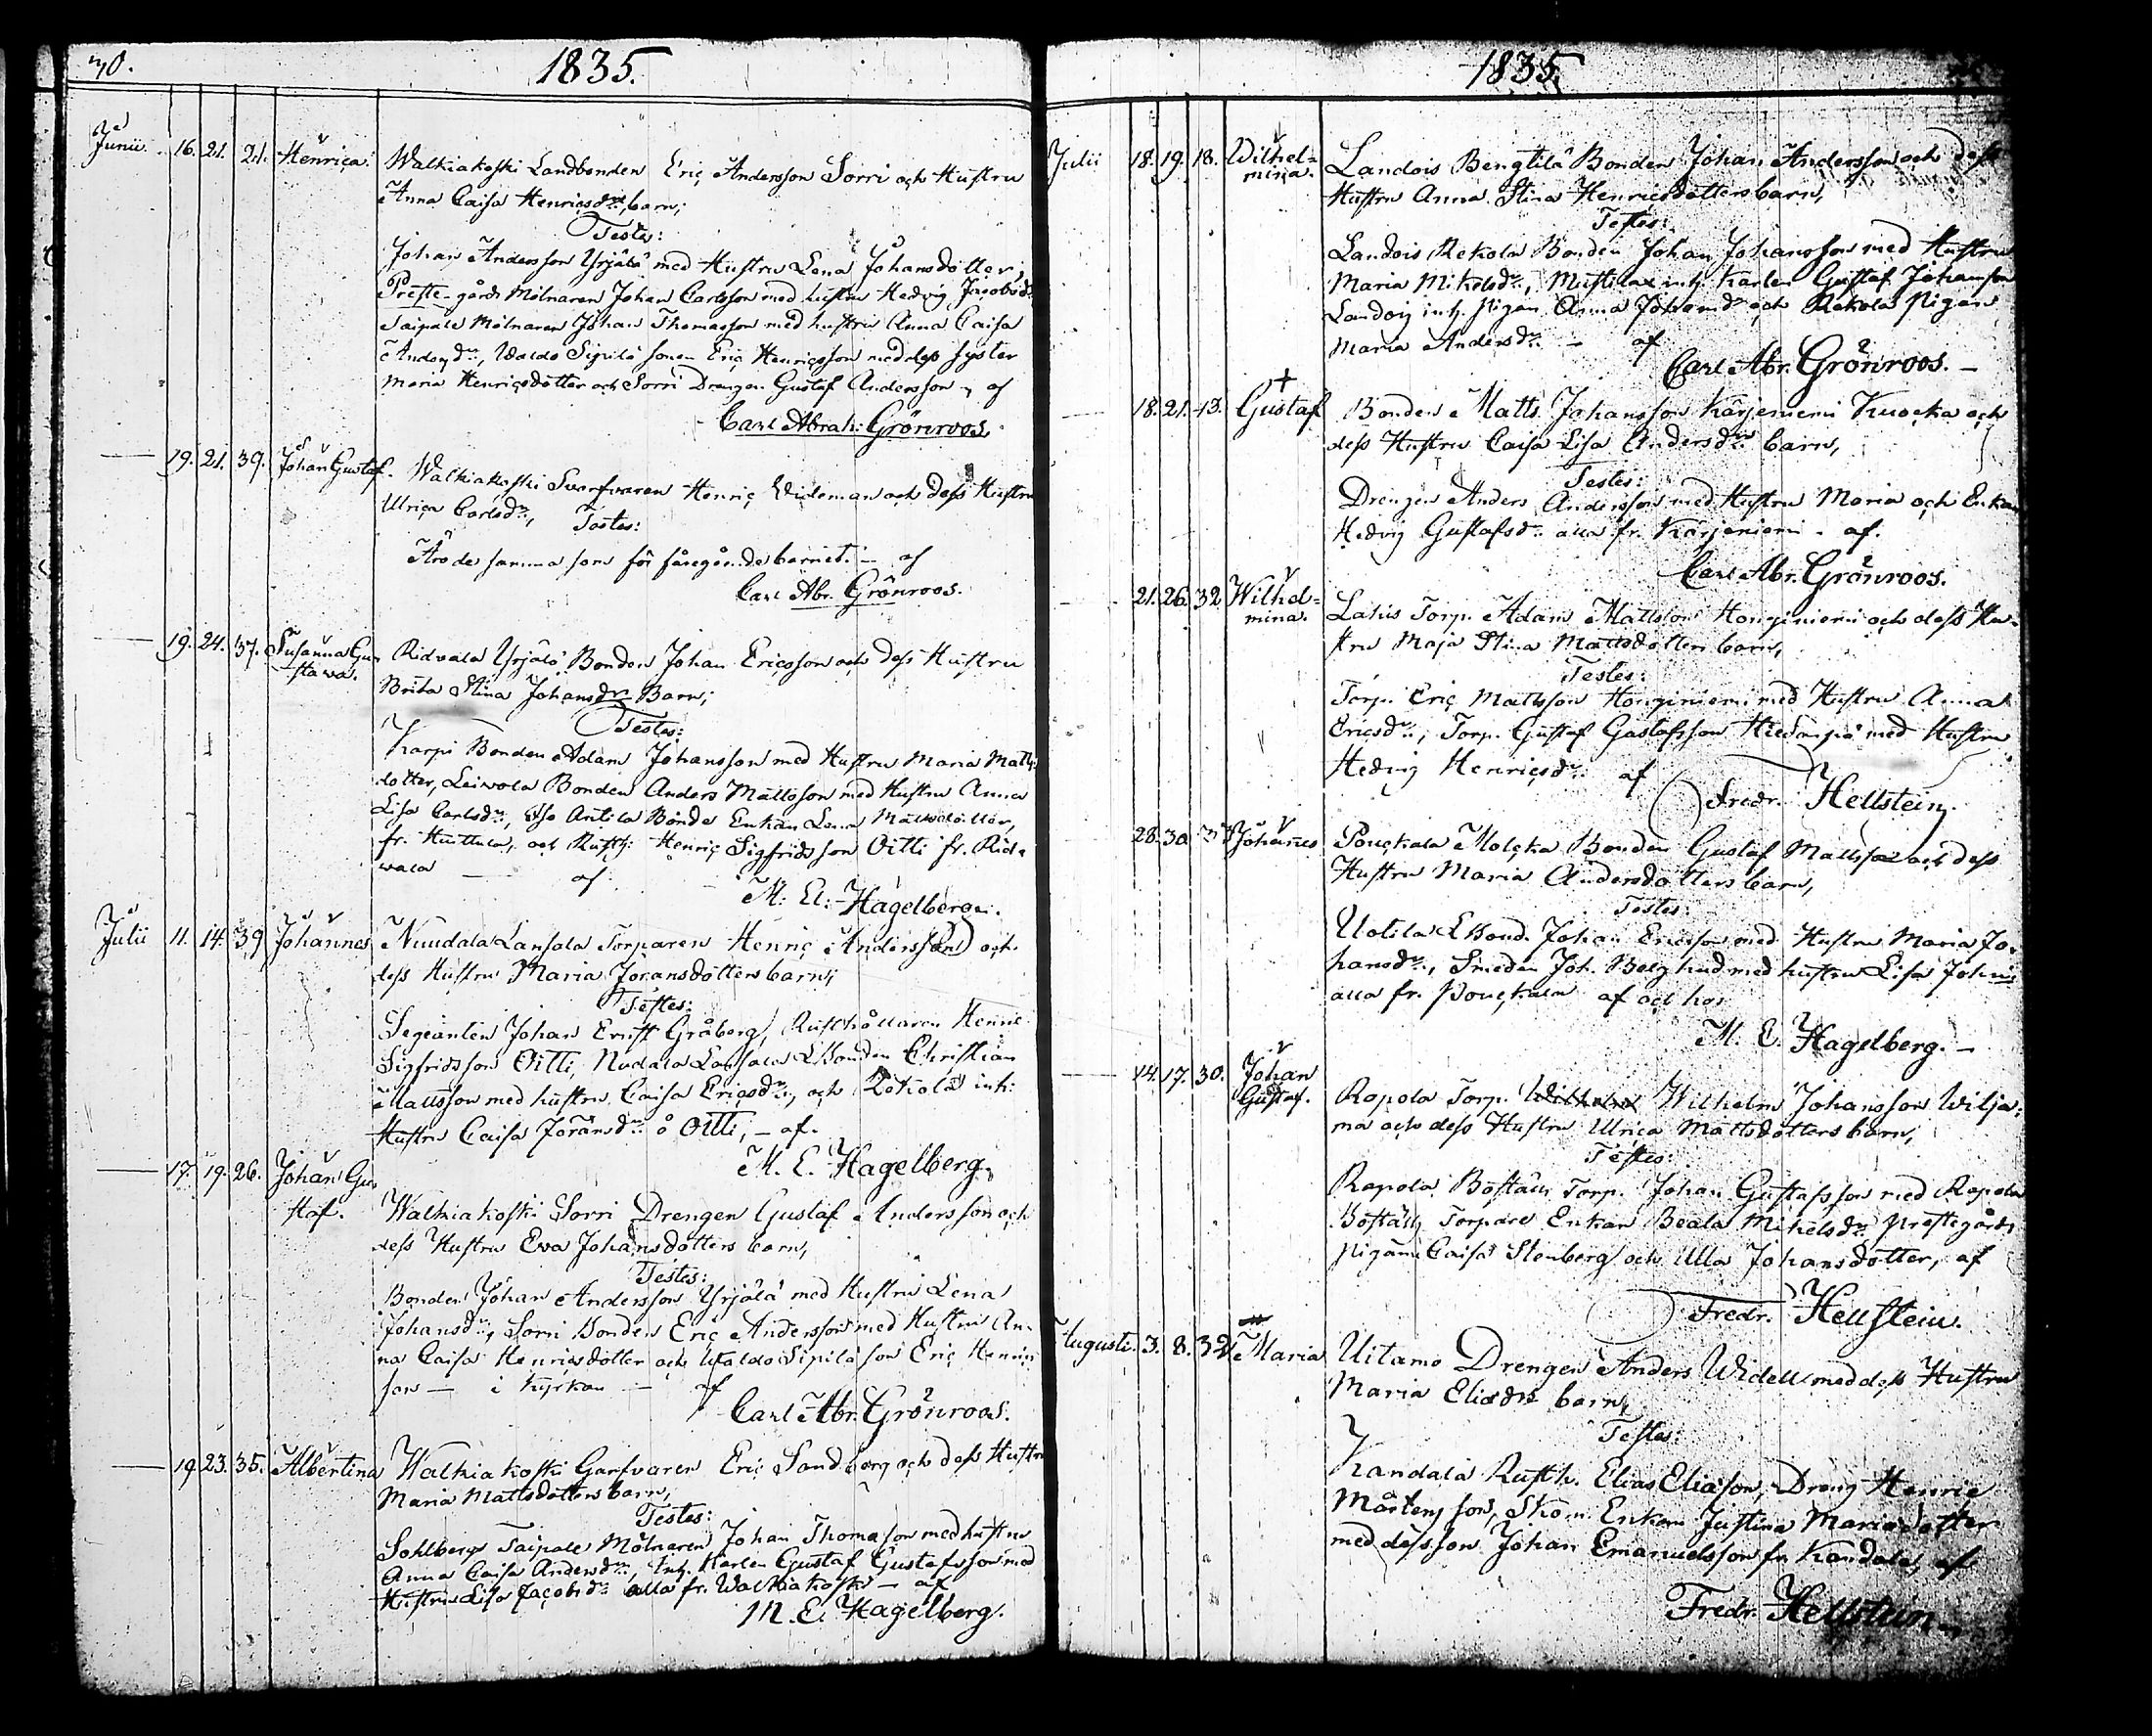 30.
1835.
Junii. 16. 21. 21. Henrica. Walkiakoski Landbonden Eric Andersson Sorri och Hustru
Anna Caisa Henricsdr, barn;
Testes:
Johan Andersson Yrjälä med Hustru Lena Johansdotter;
Preste-gårds Mölnaren Johan Carlsson med hustru Hedvig Jacobsdr
Taipale Mölnaren Johan Thomasson med hustru Anna Caisa
Andersdr, Uvaldo Sipilä sonen Eric Henricsson med dess syster
Maria Henricsdotter och Sorri Drengen Gustaf Andersson, af
Carl Abrah: Grönroos.
19. 21. 39. Johan Gustaf. Walkiakoski Svarfvaren Henric Wideman och dess Hustru
Ulrica Carlsdr, Testes:
Äro de samma som för föregående barnet. — af
Carl Abr. Grönroos.
19. 24. 37. Susanna Gu-
stava. Ridvala Yrjälä Bonden Johan Ericsson och dess Hustru
Brita Stina Johansdrs Barn;
Testes:
Karpi Bonden Adam Johansson med Hustru Maria Matts
dotter, Leivola Bonden Anders Mattsson med Hustru Anna
Lisa Carlsdr, Antila Bonde Enkan Lena Mattsdotter,
fr. Huittula, och Rusth: Henric Sigfridsson Oitti fr. Rid-
vala — af
M: E: Hagelberg.
Julii 11. 14. 39 Johannes Nuudala Lansala Torparen Henric Andersson och
dess Hustru Maria Joransdotters barn;
Testes:
Segeanten Johan Ernst Gråberg, Rusthållaren Henric
Sigfridsson Oitti, Nudala Lansala LBonden Christian
Mattsson med hustru Caisa Ericsdr, och Lokola inh:
Hustru Caisa Joransdr å Oitti, — af.
M. E. Hagelberg.
17. 19. 26. Johan Gu-
staf. Walkiakoski Sorri Drengen Gustaf Andersson och
dess Hustru Eva Johansdotters barn,
Testes:
Bonden Johan Andersson Yrjälä med Hustru Lena
Johansdr, Sorri Bonden Eric Andersson med Hustru An-
na Caisa Henricsdotter och Uvaldo Sipilä son Eric Henrics
son — i kyrkan — af
Carl Abr. Grönroos.
19. 23. 35. Albertina Walkiakoski Garfvaren Eric Sandberg och dess Hustru
Maria Mattsdotters barn,
Testes:
Sohlberg Taipale Mölnaren Johan Thomasson med hustru
Anna Caisa Andersdr, Inh. Karlen Gustaf Gustafsson med
Hustru Lisa Jacobsdr alla fr. Walkiakoski — af
M. E. Hagelberg.
1835
Julii 18. 19. 18. Wilhel-
mina. Landois Bengtilä Bonden Johan Andersson och dess
Hustru Anna Stina Henricsdotters barn,
Testes:
Landois Rekola Bonden Johan Johansson med Hustru
Maria Mikelsdr, Mustila inh. Karlen Gustaf Johansson
Landoig inh. Pigan Anna Johansdr och Rekola Pigan
Maria Andersdr — af
Carl Abr. Grönroos. —
18. 21. 13. Gustaf Bonden Matts Johansson Kärjenniemi Kuocka och
dess Hustru Caisa Lisa Andersdrs barn,
Testes:
Drengen Anders Andersson med Hustru Maria och Enkan
Hedvig Gustafsdr alla fr. Kärjeniemi. af.
Carl Abr. Grönroos.
21. 26. 32 Wilhel-
mina. Lahis Torp. Adam Mattsson Honginiemi och dess Hu-
stru Maja Stina Mattsdotters barn,
Testes:
Torp. Eric Mattsson Honginiemi med Hustru Anna
Ericsdr, Torp. Gustaf Gustafsson med Hustru
Hedvig Henricsdr af
Fredr. Hellstein.
28. 30. Johannes Pouckala Molcka Bonden Gustaf Mattsson och dess
Hustru Maria Andersdotters barn,
Testes:
Uotila LBond. Johan Ericsson med Hustru Maria Jo-
hansdr, Smeden Joh. Berglund med hustru Lisa Johns
alla fr. Pouckala af och hos
M. E. Hagelberg. —
14. 17. 30. Johan
Gustaf. Rapola Torp. Wilhelm Johansson Wilja-
ma och dess Hustru Ulrica Mattsdotters barn,
Testes:
Rapola Boställs Torp. Johan Gustafsson med Rapola
Boställs Torpare Enkan Beata Mikelsdr, prestegårds
pigan Caisa Stenberg och Ulla Johansdotter, af
Fredr. Hellstein.
Augusti. 3. 8. 32 Maria Uitamo Drengen Anders Widell med dess Hustru
Maria Eliedrs barn,
Testes:
Kandala Rusth. Elias Eliasson, Dreng Henric
Mårtensson, Skom. Enkan Justina Mariædotter
med dess son Johan Emanuelsson fr. Kandala, af
Fredr. Hellstein